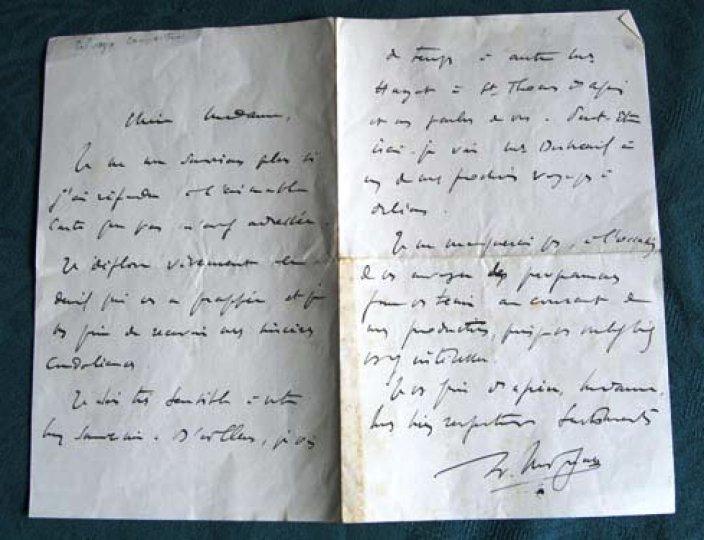 Chère Madame,
Je ne me souviens plus si
j'ai répondu à l'aimable
carte que vous m'avez adressée.
Je déplore vivement le
deuil qui vous a frappée et je
vous prie de recevoir mes sincères
condoléances
Je suis très sensible à votre
bon souvenir. D'ailleurs, je vois
de temps à autre
à St Thomas d'Aquin
et nous parlons de vous. Peut-être
irai-je voir à
un de mes prochains voyages à
Orléans.
Je ne manquerai pas, à l'occasion,
de vous envoyer des programmes
pour vous tenir au courant de
mes productions, puisque
vous y intéresser.
Je vous prie d'agréer, Madame,
mes bien respectueux sentiments